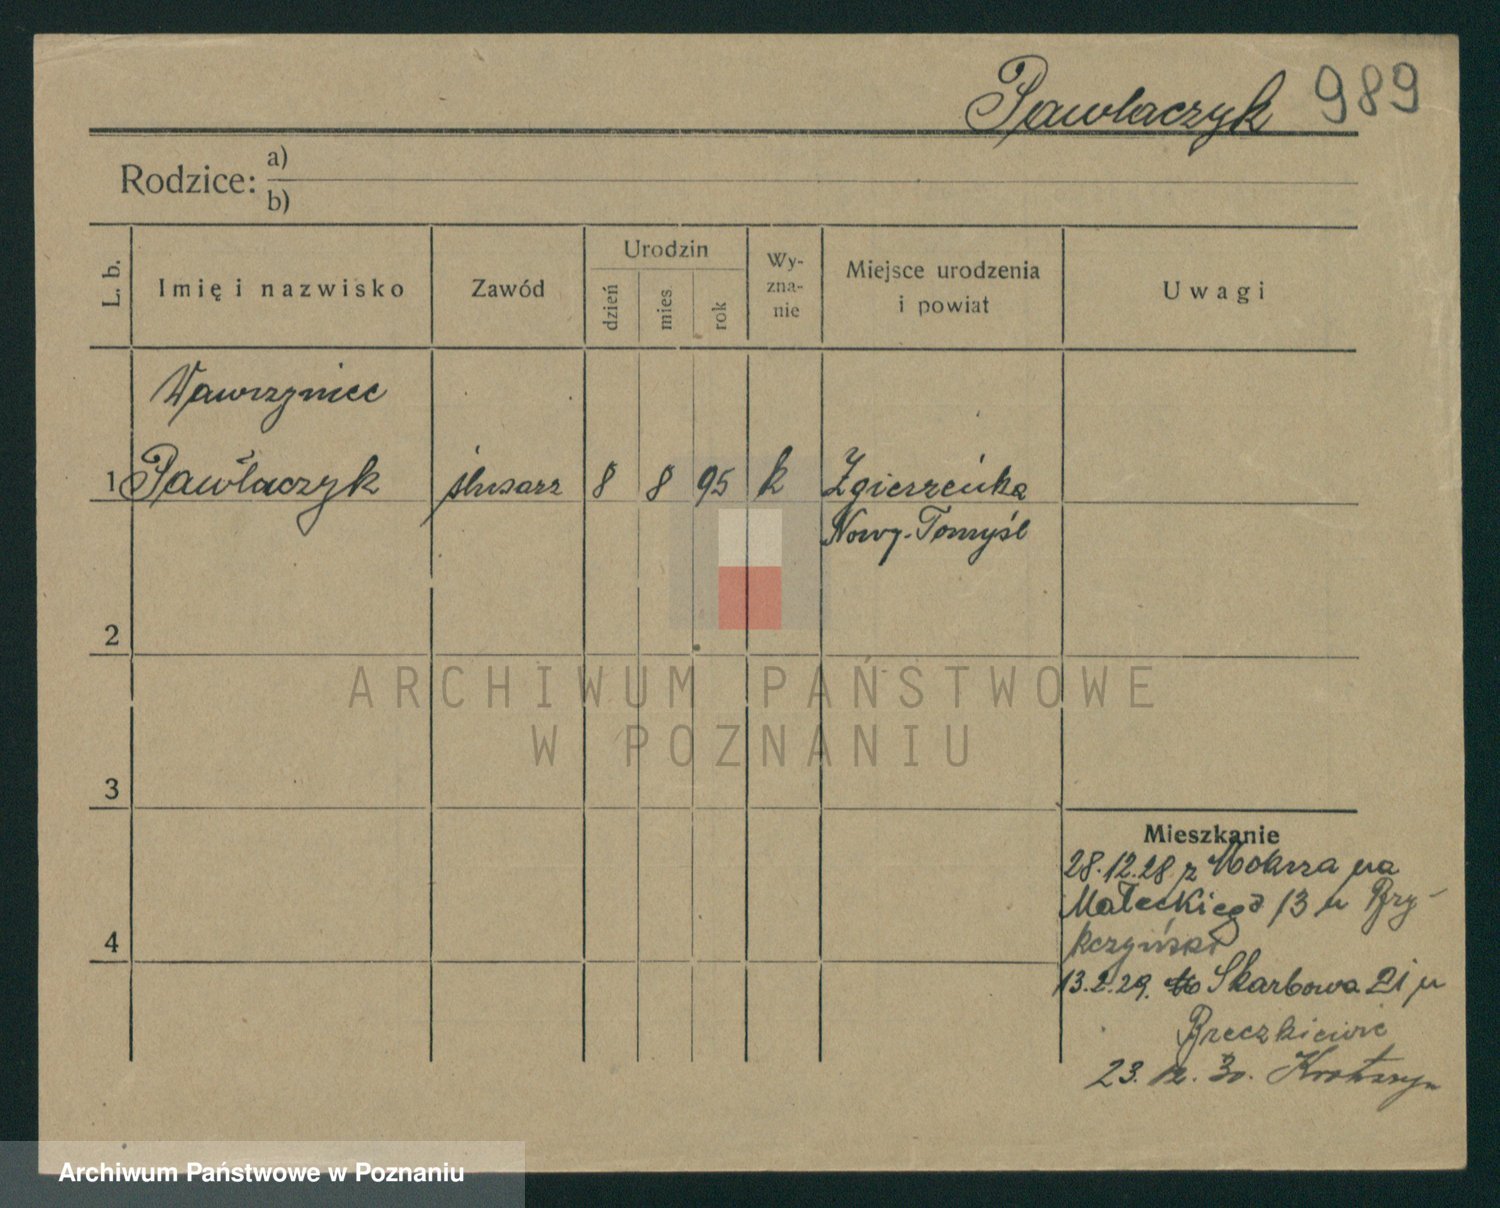 Pawlaczyk 989
Rodzice: a)
b)
L. b. Imię i nazwisko Zawód Urodzin dzień mies rok Wy-
zna-
nie Miejsce urodzenia
i powiat Uwagi
Wawrzyniec
1 Pawlaczyk ślusarz 8 8 95 k Zgierzeńka
Nowy-Tomyśl
2
ARCHIWUM PAŃSTWOWE
W POZNANIU
3
Mieszkanie
28.12.28 z Mokra na
Małeckiego 13 u
4
13.2.29. Skarbowa 21 u
23. 12. 30. Krotoszyn
Archiwum Państwowe w Poznaniu